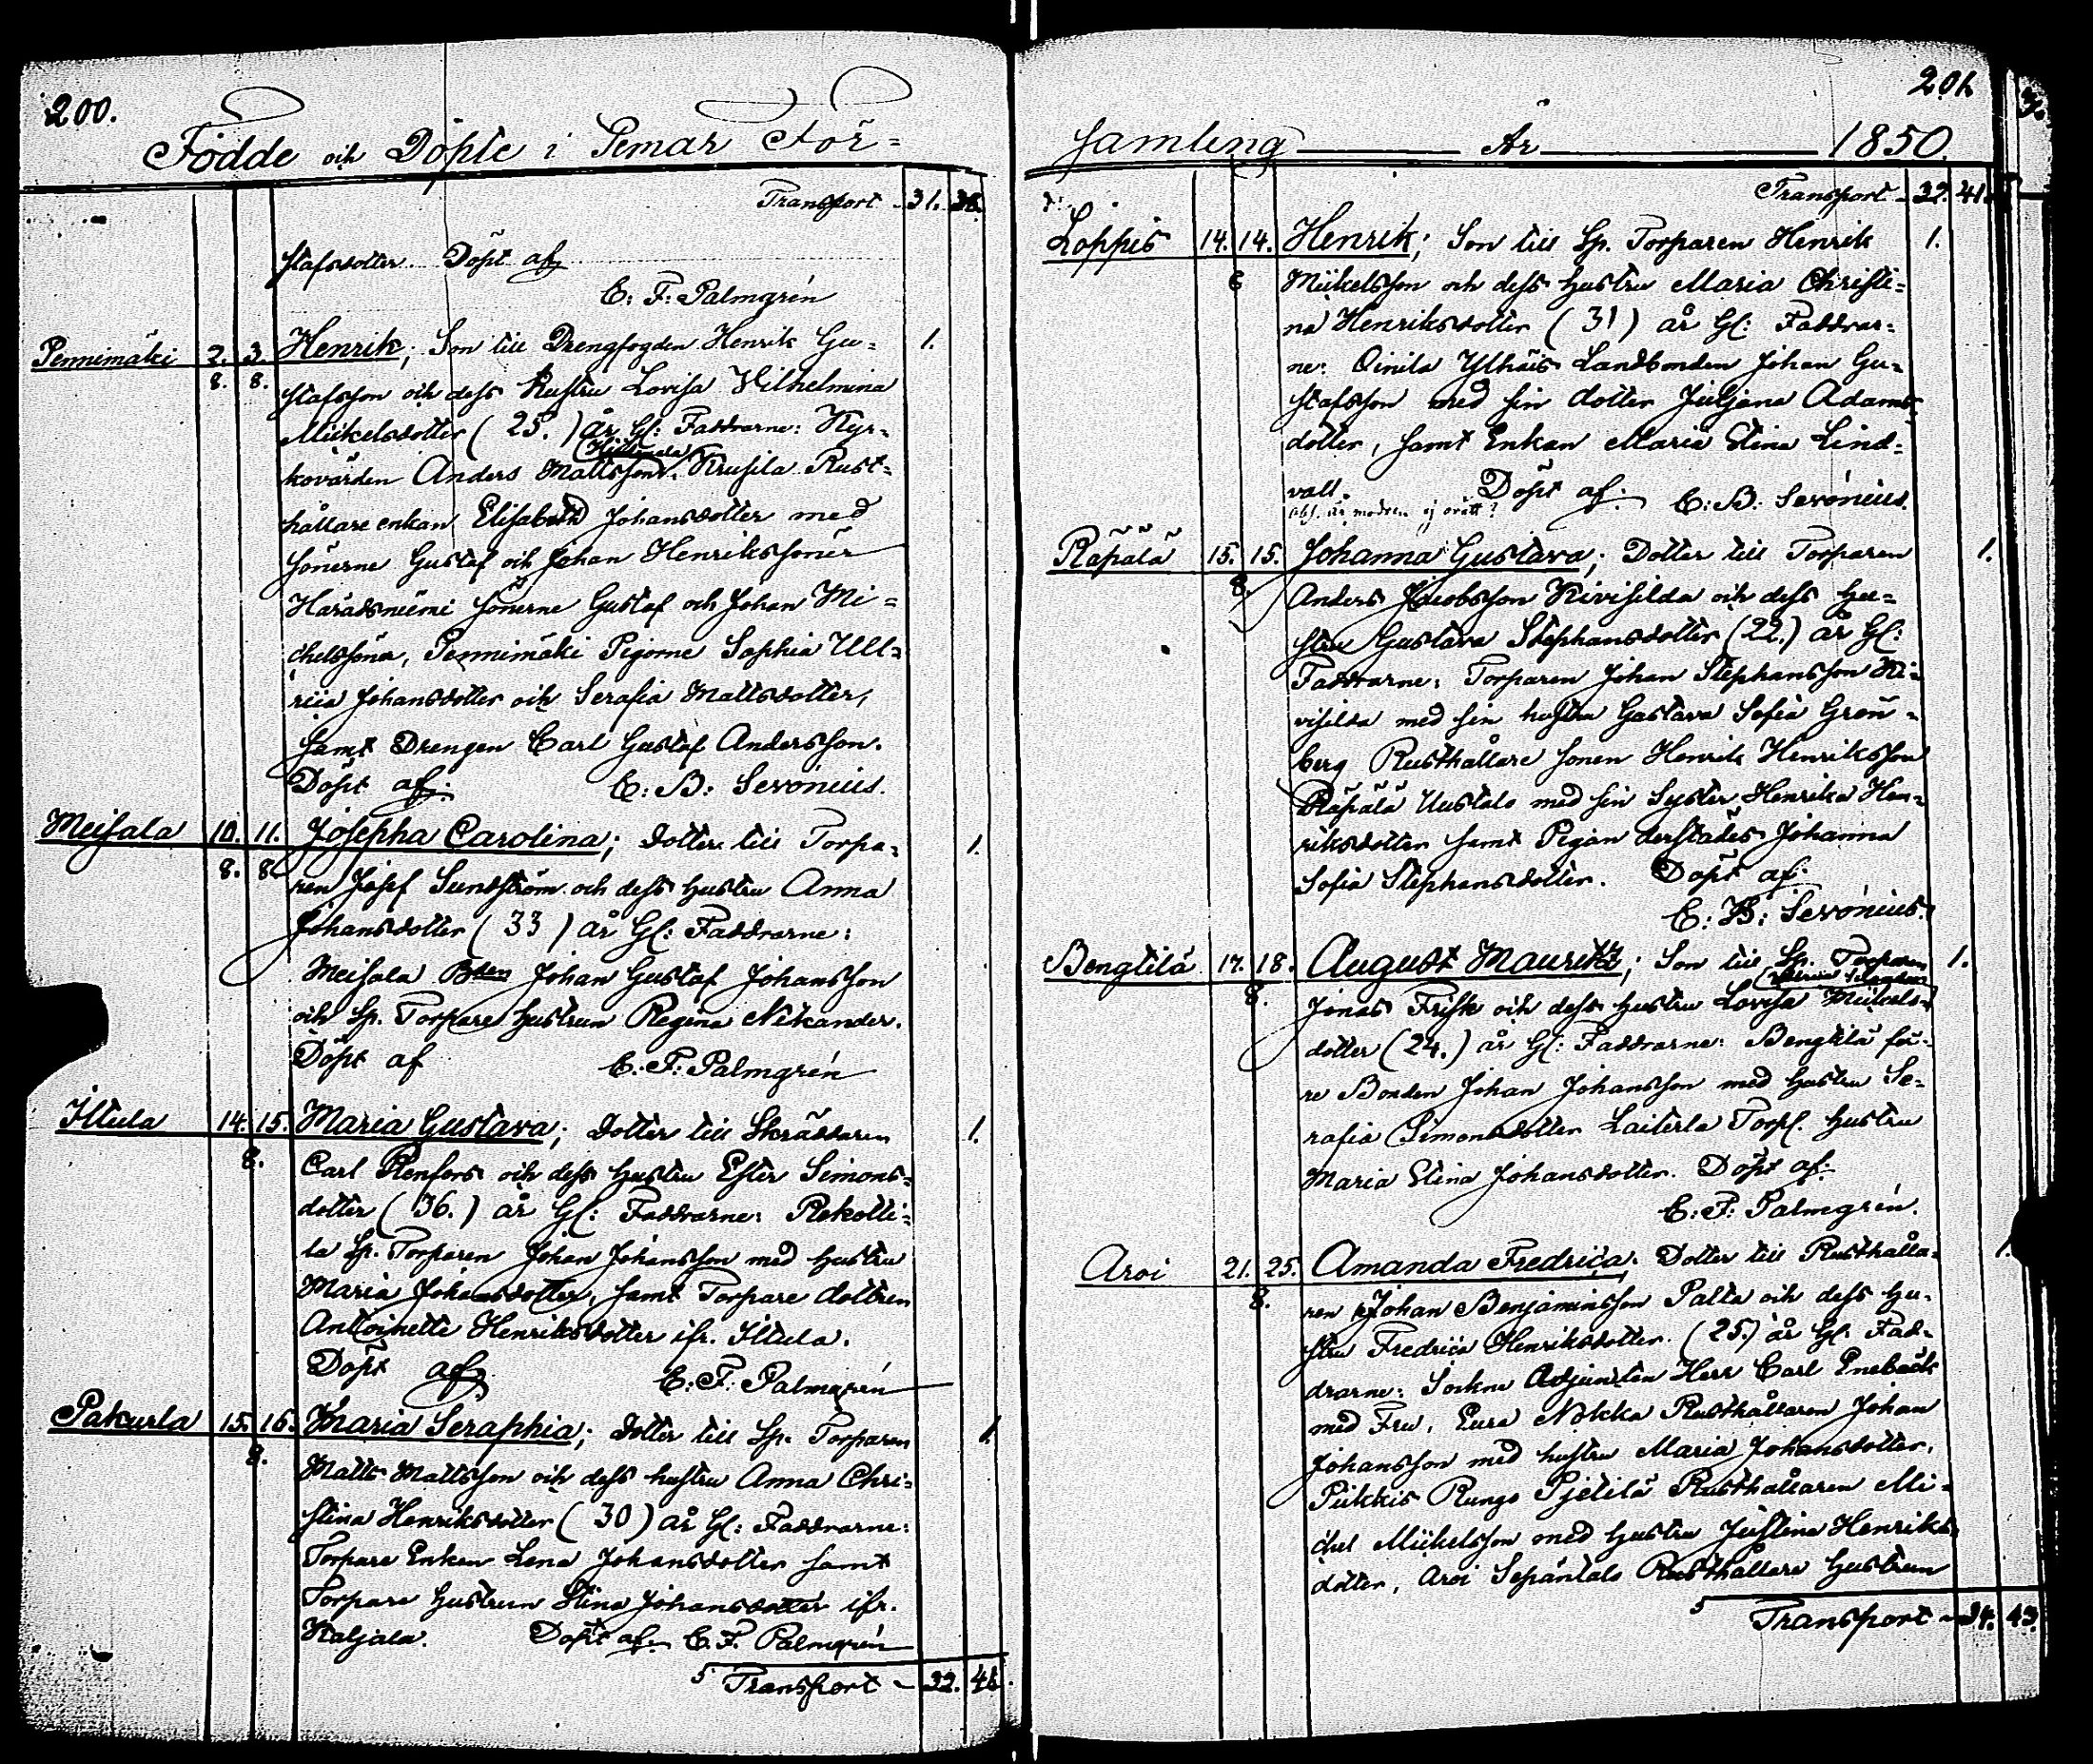 200.
Födde och Döpte i Pemar För-
Transport - 31. 38.
stafsdotter. Döpt af
C: F: Palmgrén
Pennimäki 2. 3. Henrik; Son till Drengfogden Henrik Gu- 1.
8. 8. stafsson och dess Hustru Lovisa Wilhelmina
Mickelsdotter (25.) år Gl: Faddrarne: Kyr-
kovärden Anders Mattsson. Krusila Rust-
hållare enkan Elisabeth Johansdotter med
Sönerne Gustaf och Johan Henrikssöner
Haradsniemi Sönerne Gustaf och Johan Mi-
chelssöner, Pennimäki Pigorne Sophia Ull-
rica Johansdotter och Serafia Mattsdotter,
samt Drengen Carl Gustaf Andersson.
Döpt af: C: B: Seronius.
Meisala 10. 11. Josepha Carolina; Dotter till Torpa- 1.
8. 8. ren Josef Sundström och dess Hustru Anna
Johansdotter (33) år Gl: Faddrarne:
Meisala Bden Johan Gustaf Johansson
och Sp. Torpare hustrun Regina Nikander.
Döpt af C: F: Palmgrén
Iltula 14. 15. Maria Gustava; Dotter till Skräddaren 1.
8. Carl Renfors och dess Hustru Ester Simons-
dotter (36.) år Gl: Faddrarne: Rekotti-
la Sp. Torparen Johan Johansson med hustru
Maria Johansdotter, samt Torpare dottren
Antoinette Henriksdotter ifr. Iltula.
Döpt af C: F: Palmgrén
Pakurla 15. 16. Maria Seraphia; Dotter till Sp. Torparen 1.
8. Matts Mattsson och dess hustru Anna Chri-
stina Henriksdotter (30) år Gl: Faddrarne:
Torpare Enkan Lena Johansdotter samt
Torpare hustrun Stina Johansdotter ifr.
Kaljala. Döpt af C. F. Palmgrén
5 Transport - 32. 41.
201.
samling År 1850.
Transport - 32. 41.
Loppis 14. 14. Henrik; Son till Sp. Torparen Henrik 1.
8 Mickelsson och dess hustru Maria Christi-
na Henriksdotter (31) år Gl: Faddrar-
ne: Qinila Ylhäis Landbonden Johan Gu-
stafsson med sin dotter Juljana Adams-
dotter, samt Enkan Maria Stina Lind-
vall. Döpt af: C: B: Seronius.
Räpälä 15. 15. Johanna Gustava; Dotter till Torparen 1.
8. Anders Jacobsson Kivisilda och dess hu-
stru Gustava Stephansdotter (22.) år Gl:
Faddrarne: Torparen Johan Stephansson Ki-
visilda med sin hustru Gustava Sofia Grön-
berg Rusthållare sonen Henrik Henriksson
Räpälä Uustalo med sin Syster Henrika Hen-
riksdotter samt Pigan derstädes Johanna
Sofia Stephansdotter. Döpt af:
C: B: Seronius.
Bengtilä 17. 18. August Mauritz; Son till Sp. Torparen 1.
8. Jonas Frisk och dess hustru Lovisa Mickels-
dotter (24.) år Gl: Faddrarne: Bengtilä fö-
re Bonden Johan Johansson med hustru Se-
rafia Simonsdotter Laiterla Torp. hustru
Maria Stina Johansdotter. Döpt af:
C: F: Palmgrén.
Aroi 21. 25. Amanda Fredrica. Dotter till Rusthålla- 1.
8. ren Johan Benjaminsson Palta och dess hu-
stru Fredrica Henriksdotter. (25.) år Gl: Fad-
drarne: Sockne Adjuncten Herr Carl Enebäck
med Fru, Eura Nokka Rusthållaren Johan
Johansson med hustru Maria Johansdotter,
Piikkis Rungo Pjetilä Rusthållaren Mi-
chel Mickelsson med hustru Justina Henriks-
dotter, Aroi Sepäntalo Rusthållare hustrun
5 Transport - 34. 43.